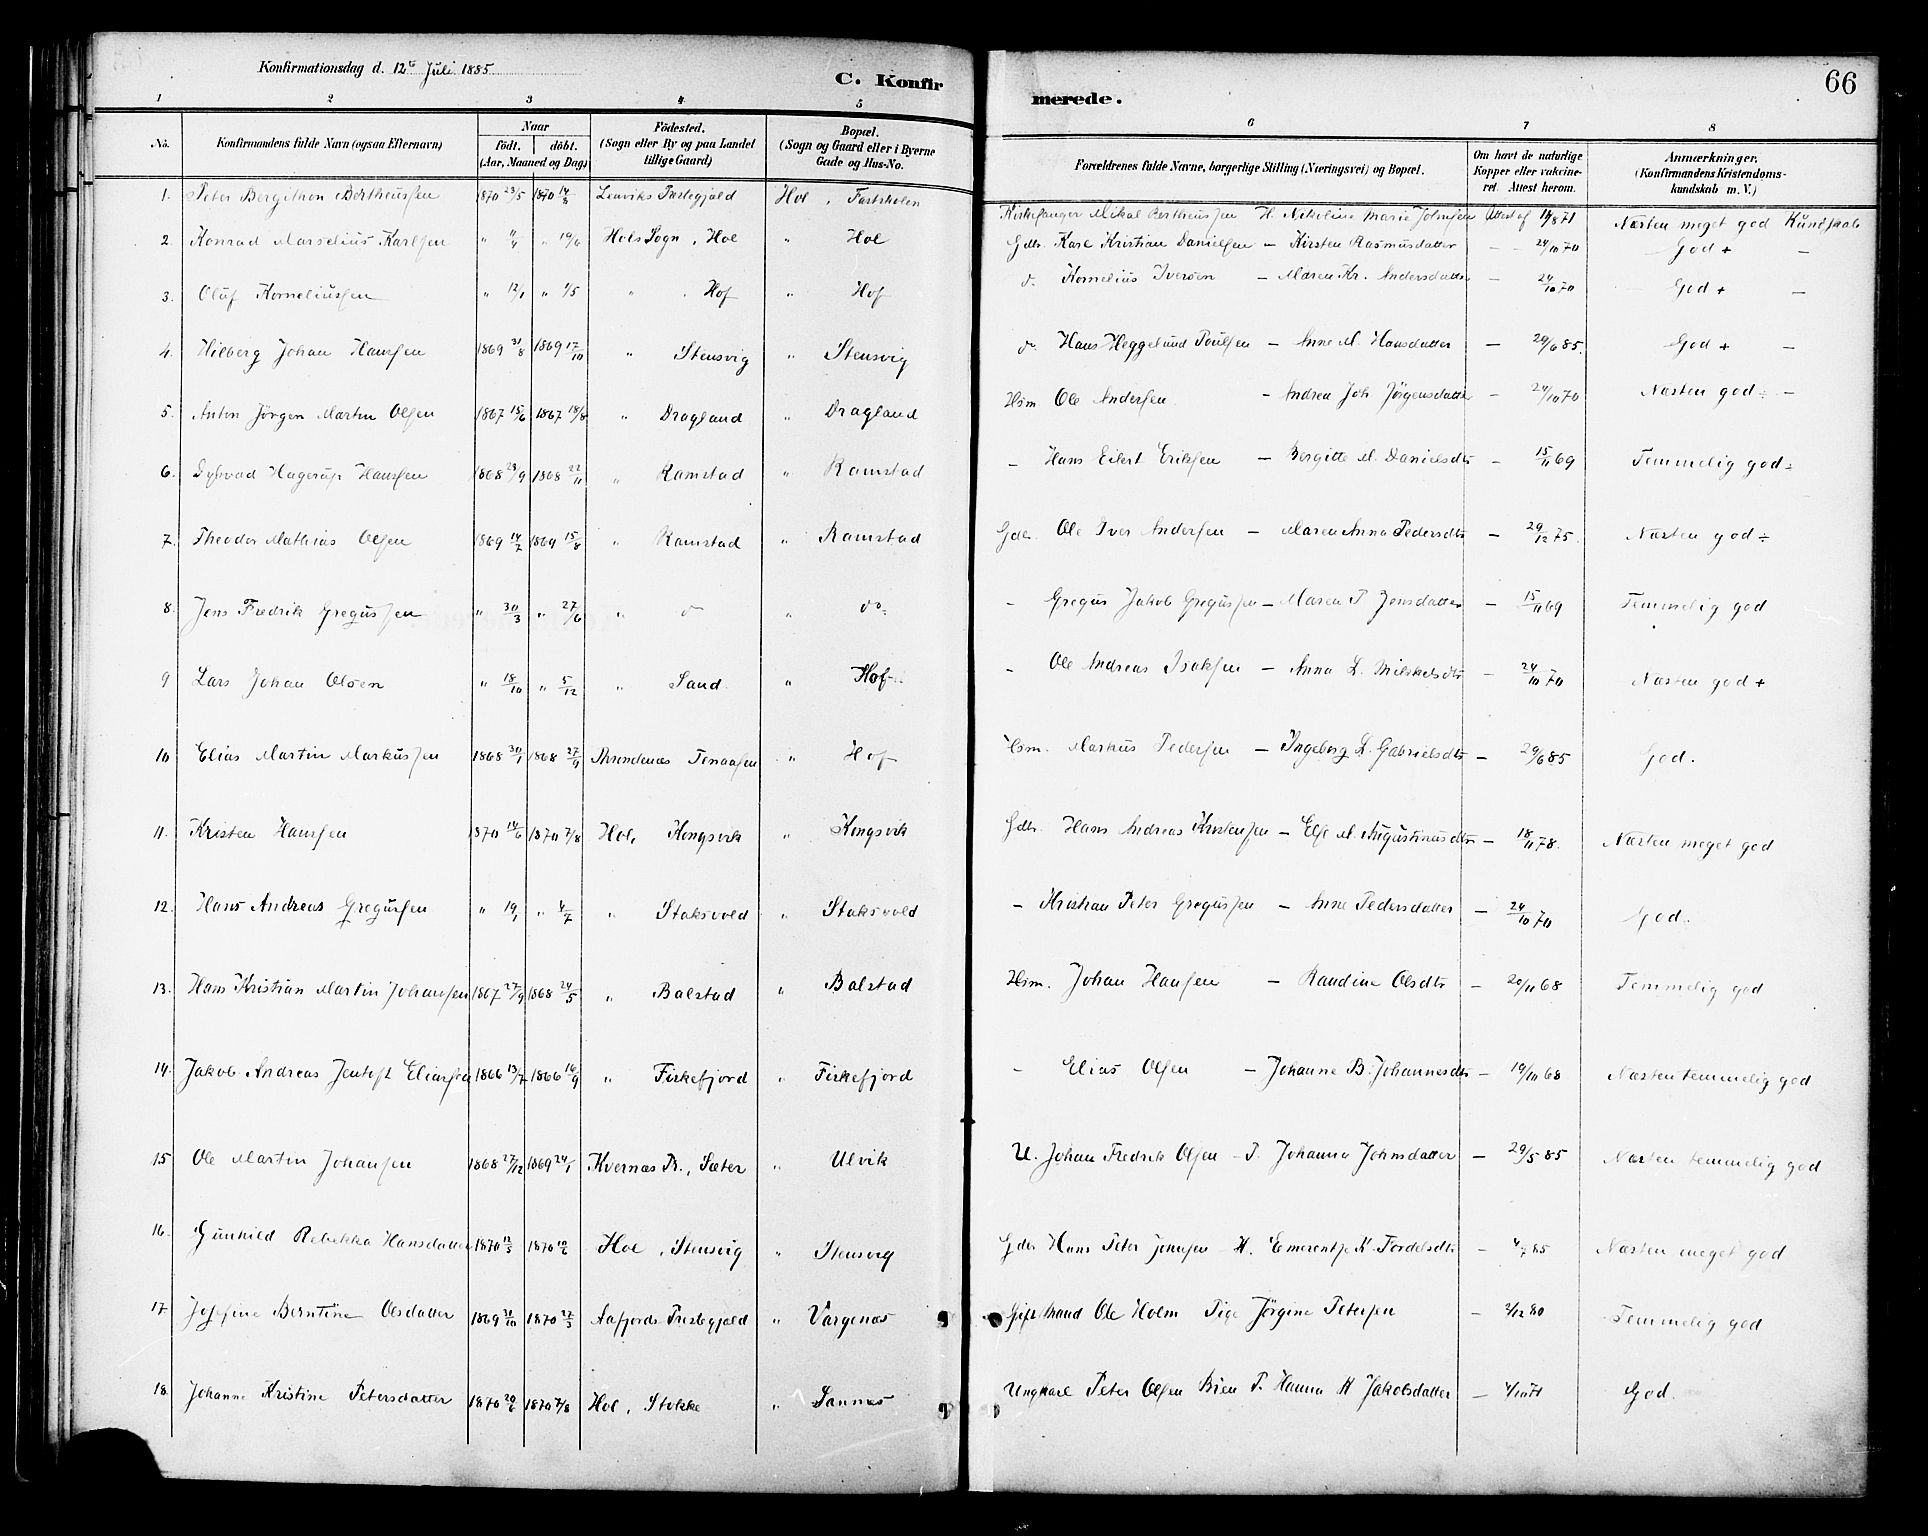 Konfirmationsdag d. 12te Juli 1885
C. Konfirmerede. 66
1 2 3 4 5 6 7 8
No. Konfirmandens fulde Navn (ogsaa Efternavn) Naar födt. döbt. (Aar, Maaned og Dag) Födested. (Sogn eller By og paa Landet tillige Gaard) Bopæl. (Sogn og Gaard eller i Byerne Gade og Hus-No. Forældrenes fulde Navne, borgerlige Stilling (Næringsvei) og Bopæl. Om havt de naturlige Kopper eller vakcineret. Attest herom. Anmærkninger. (Konfirmandens Kristendomskundskab m. V.)
1. Peter Bergithon Bertheussen 1870 23/5 1870 14/8 Lenviks Prestegjæld Hol, Fastskolen Kirkesanger Mikal Bertheussen H. Nikoline Marie Johnsen Attest af 14/8 71 Næsten meget god Kundskab
2. Konrad Marselius Karlsen " 11/4 " 19/6 Hols Sogn, Hol " Hol Gdbr. Karl Kristian Danielsen – Kirsten Rasmusdatter – – 24/10 70 God + –
3. Oluf Korneliussen " 12/1 " 1/5 " Hof " Hof do. Kornelius Iversen – Maren Kr. Andersdatter – 24/10 70 God + –
4. Hilberg Johan Hansen 1869 31/8 1869 17/10 " Stensvig " Stensvig do. Hans Heggelund Poulsen – Anne M. Hansdatter – 29/6 85. God + –
5. Anton Jörgen Martin Olsen 1867 15/6 1867 18/8 " Dragland " Dragland Hsm Ole Andersen – Andrea Joh. Jörgensdatter – 24/10 70 Næsten god ÷ –
6. Dybvad Hagerup Hansen 1868 23/9 1868 22/11 " Ramstad " Ramstad – Hans Eilert Eriksen – Bergitte M. Danielsdtr – 15/11 69 Temmelig god ÷
7. Theodor Mathias Olsen 1869 14/7 1869 15/8 " Ramstad " Ramstad Gdbr. Ole Iver Andersen – Maren Anna Pedersdtr – 29/12 75. Næsten god ÷
8. Jens Fredrik Gregussen " 30/3 " 27/6 " do " do. – Gregus Jakob Gregussen – Maren P. Jensdatter – 15/11 69 Temmelig god
9 Lars Johan Olsen " 18/10 " 5/12 " Sand " Hof – Ole Andreas Isaksen – Anna L. Mikkelsdtr – 24/10 70 Næsten god +
10 Elias Martin Markussen 1868 30/1 1868 27/9 Throndenæs " Hof Hsm. Markus Pedersen – Ingeborg L. Gabrielsdtr – 29/6 85 God.
11. Kristen Hansen 1870 14/6 1870 7/8 Hol, Kongsvik " Kongsvik Gdbr. Hans Andreas Kristensen – Else M. Augustinusdtr – 18/11 78. Næsten meget god
12. Hans Andreas Gregussen " 19/1 " 4/7 " Staksvold " Staksvold – Kristian Peter Gregussen – Anne Pedersdatter – 24/10 70 God.
13. Hans Kristian Martin Johansen 1867 27/9 1868 24/5 " Balstad " Balstad Hsm. Johan Hansen – Randine Olsdtr – 20/11 68 Temmelig god
14. Jakob Andreas Jentoft Eliassen 1866 13/7 1866 16/9 " Fiskefjord " Fiskefjord – Elias Olsen – Johanne B. Johannesdtr – 19/10 68 Næsten temmelig god
15 Ole Martin Johansen 1868 27/12 1869 24/1 Kvernæs Pr., Sæter " Ulvik U. Johan Fredrik Olsen – P. Johanna Johnsdatter – 29/5 85 Næsten temmelig god
16. Gunhild Rebekka Hansdatter 1870 12/5 1870 19/6 Hol, Stensvig " Stensvig Gdbr Hans Peter Jensen H. Emerentse K. Tordelsdtr – 4/7 85 Næsten meget god
17. Josefine Berntine Olsdatter 1869 31/10 1870 27/3 Aafjords Prestegjæld " Vargenæs Gift Mand Ole Holm Pige Jörgine Petersen – 2/12 80 Temmelig god
18. Johanne Kristine Petersdatter 1870 20/6 1870 7/8 Hol, Stokke " Sannes Ungkarl Peter Olsen Bien P. Hanna K Jakobsdatter – 4/10 71 God.